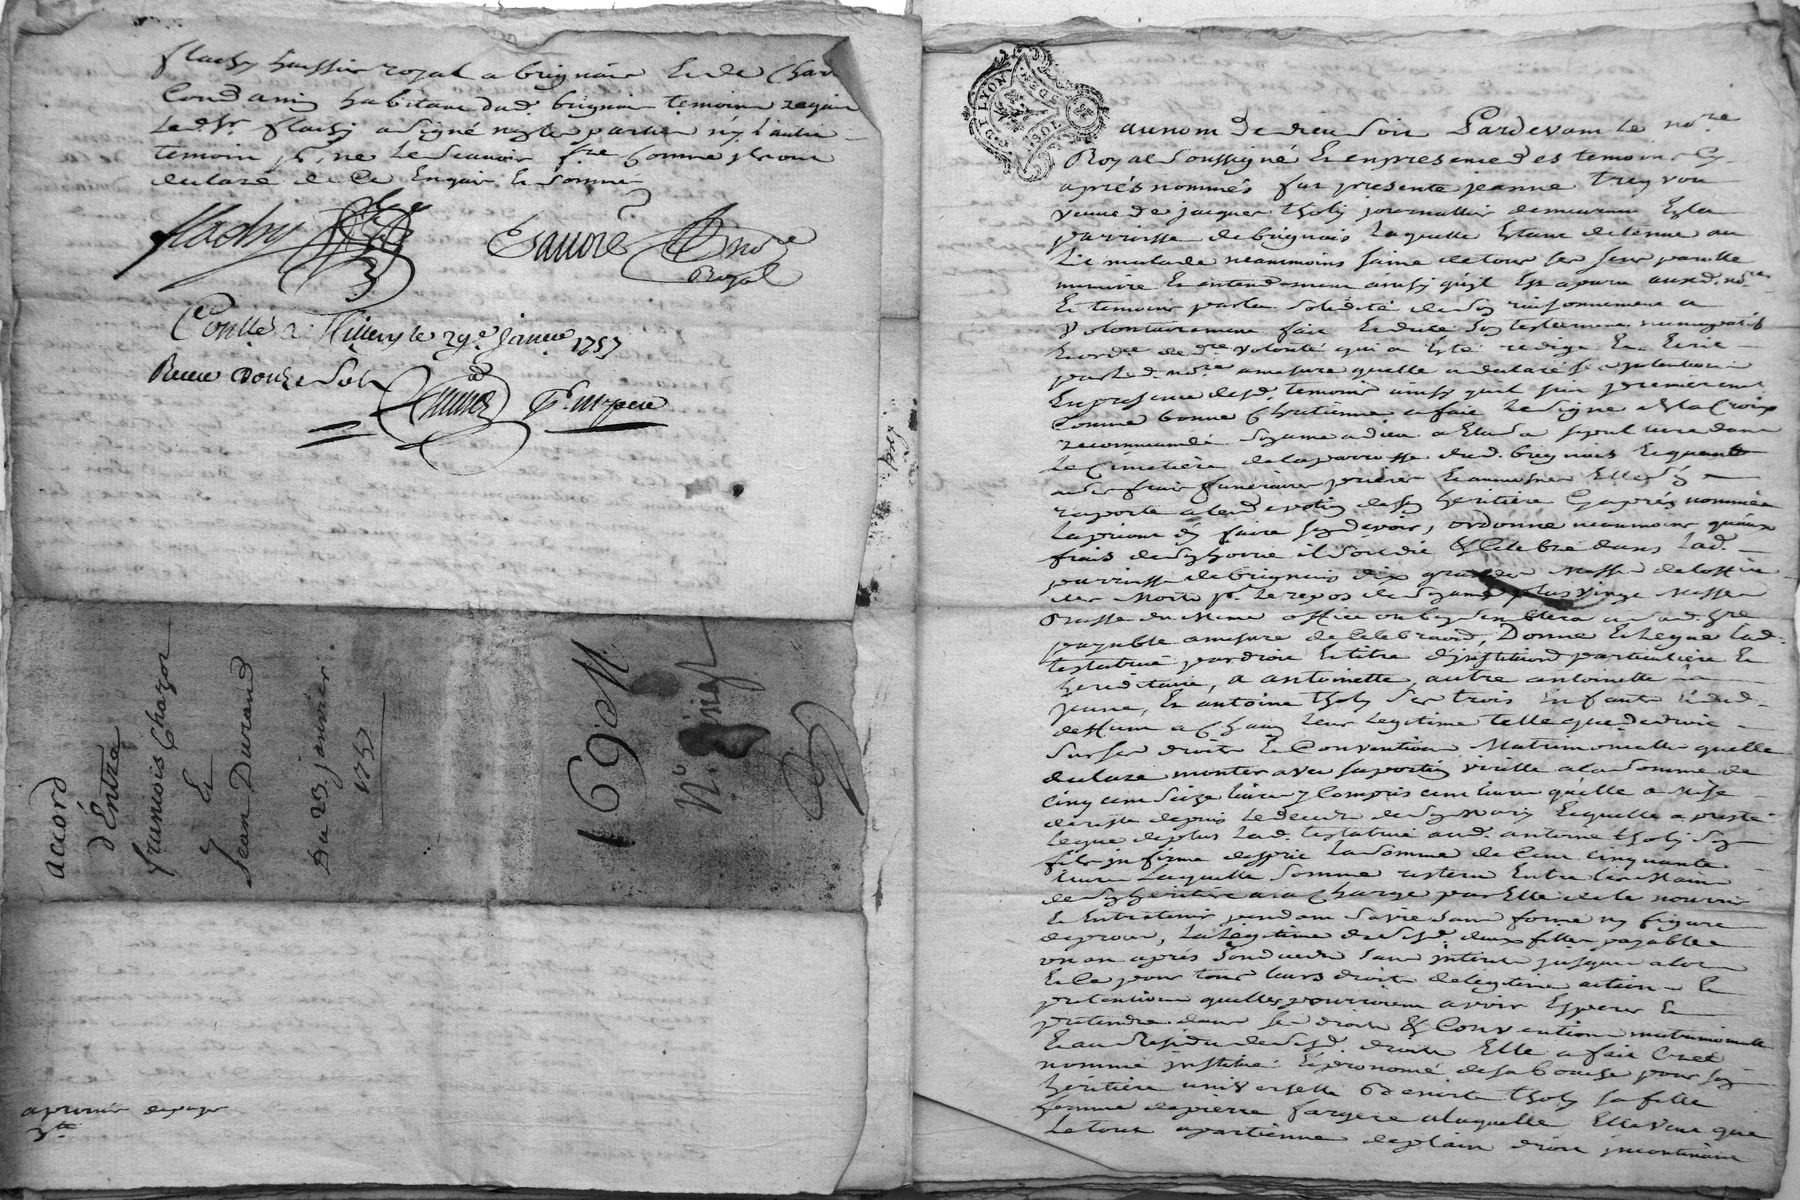 flachy huissier royal a brignais et de
habitant dud. brignais temoins requis
led. Sr. flachy a signé
temoin pr. ne le scavoir fre comme
declaré de ce Enquis et sommé
flachy
Royal
Conllé a Millery le 29e. Janvier 1757
Receu Douze Sols
accord
d'Entre
francois Chazot
&
Jean Durand
Du 23 janvier
1757
169e M.
N°
G. DT LYON
au nom de dieu soit Pardevant le nore
Royal soussigné et en presence des temoins Cy
aprés nommés fut presente jeanne
veuve de jacques tholy journallier demeurant En la
parroisse de brignais laquelle Etant detenue au
Lit malade neammoins saine de tous ses sens parolle
memoire et entendement ainsy qu'il Est aparu auxd. nore
Et temoins par la solidité de son raisonnement a
volontairement fait et dicté son testament nuncupatif
et ordre. de dre. volonté qui a Eté redigé En Ecrit
par led. nore. a mesure quelle a declaré ses intentions
En presence desd. temoins ainsy quil suit premierement
Comme bonne Chretienne a fait le signe de la Croix
recommandé son ame a dieu a Elu sa sepulture dans
le Cimetiere de la parroisse dud. brignais Et quant
a ses frais funeraires prieres et aumones Elle s'en
raporte a la devotion de son heritiere Cy aprés nommée
la priant d'en faire son devoir, ordonne neammoins qu'aux
frais de son hoirie il soit dit & Celebré dans lad.
parroisse de brignais dix grandes Messes de loffice
des Morts pr. le repos de son ame plus vingt Messes
basses du Meme office ou bon semblera a sad. hre.
payable a mesure de Celebration, Donne Et Legue lad.
testatrice par droit Et titre d'institution particuliere Et
hereditaire, a antoinette, autre antoinette
jeune, Et antoine tholy ses trois Enfants &
dessunt a Chacun leur legitime telle que de droit
sur ses droits & Conventions Matrimonielles quelle
declare monter avec sa portion virille a la somme de
Cinq cent seize livres y Compris cent livres quelle a
depuis le decés de son mary Lequelle a presté
legue de plus lad. testatrice aud. antoine tholy son
fils infirme desprit la somme de Cent Cinquante
livres laquelle somme restera Entre les Mains
de son heritiere a la Charge par Elle de le nourrir
Et Entretenir pendant sa vie sans forme ny figure
de procés, la legitime de sesd. deux filles payable
un an aprés son decés sans interets jusques alors
Et Ce pour tous leurs droits de legitime action &
pretentions quelles pourroient avoir Esperer Et
pretendre dans ses droits & Conventions matrimonielle
Et au Residu de sesd. droits Elle a fait Creé
nommé institué Et prononcé de sa bouche pour son
heritiere universelle benoite tholy sa fille
femme de pierre fargere a laquelle Elle veut que
le tout apartienne de plain droit incontinant